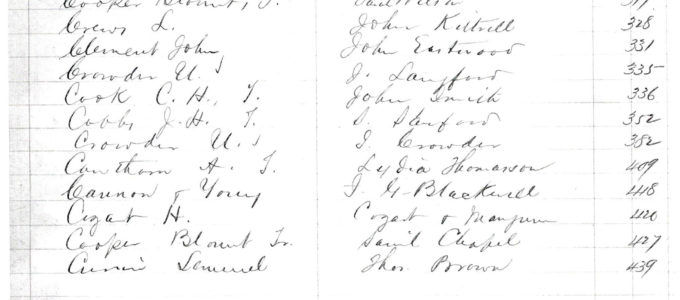 Cooper Blount, T.
Crews L. John Kittrell 328
Clement John John Eastwood 331
Crowder U. J. Langford 335
Cook C. H., T. John Smith 336
Cobbs J. H. T. S. 352
Crowder U. J. Crowder 352
Cawthorn A. T. Lydia Thomasson 409
Cannon & Young J. G. Blackwell 418
Cozart H. Cozart & Mangum 420
Cooper Blount Tr. Saml Chapel 427
Currin Samuel Thos. Brown 439